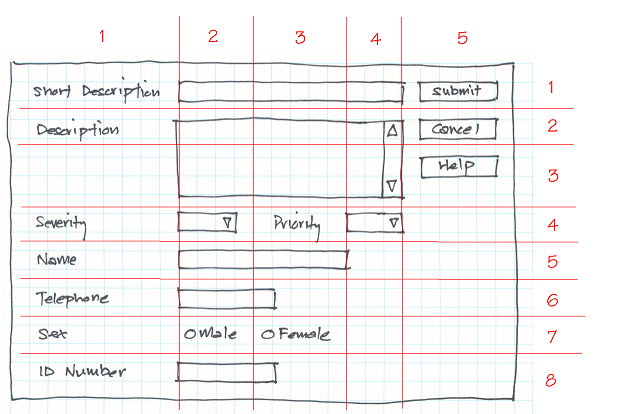 1 2 3 4 5
Short Description Submit 1
Description Cancel 2
Help 3
Severity Priority 4
Name 5
Telephone 6
Sex Male Female 7
ID Number 8